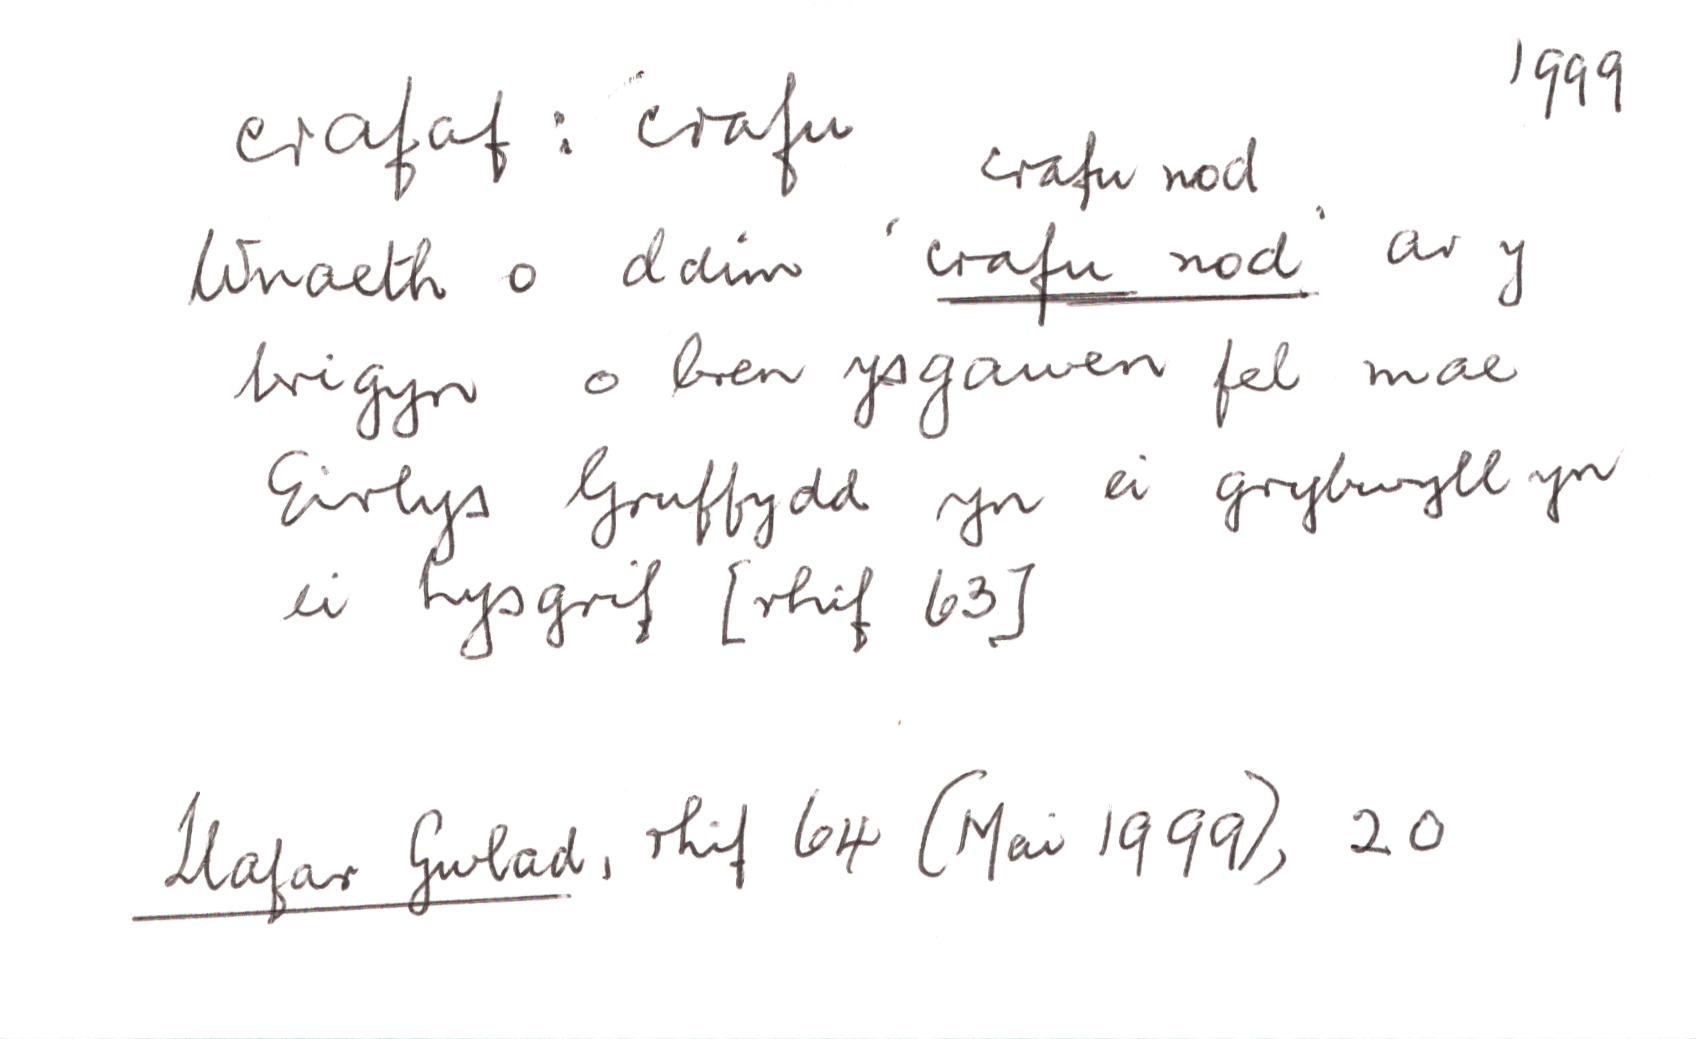 1999
crafaf : crafu
crafu nod
Wnaeth o ddim 'crafu nod' ar y
brigyn o bren ysgawen fel mae
Eirlys Gruffydd yn ei grybwyll yn
ei hysgrif [rhif 63]
Llafar Gwlad, rhif 64 (Mai 1999), 20